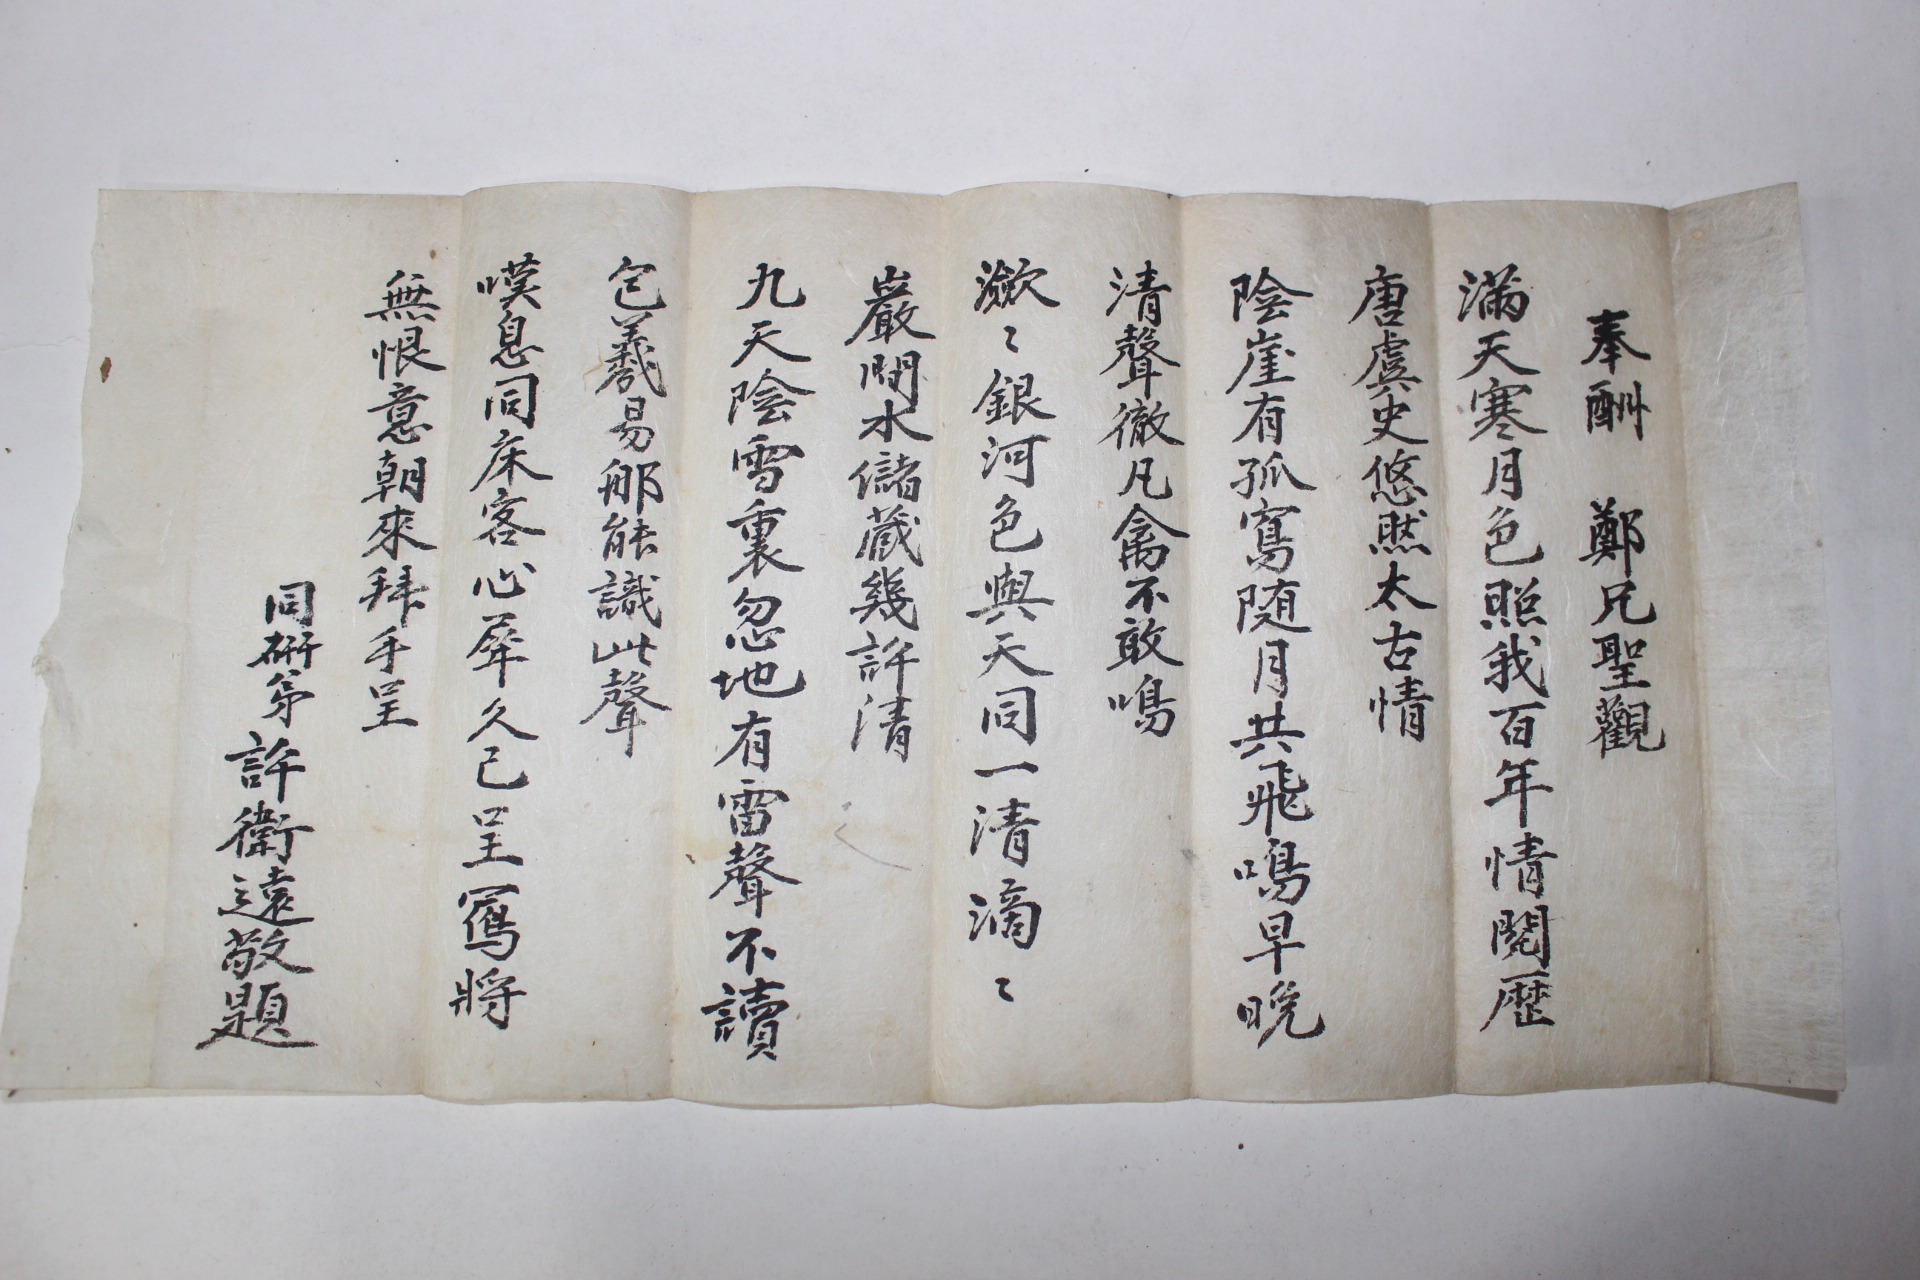 奉酬　鄭兄聖觀
滿天寒月色照我百年情閱歷
唐虞史悠然太古情
陰崖有孤寫随月共飛鳴早晩
清聲徹凡禽不敢鳴
瀲〻銀河色與天同一清滴〻
嚴閘水儲藏幾許清
九天陰雪裏忽地有雷聲不讀
包羲易那能識此聲
嘆息同床客心犀久已呈寫將
無恨意朝來拜手呈
同硏弟許衛遠敬題